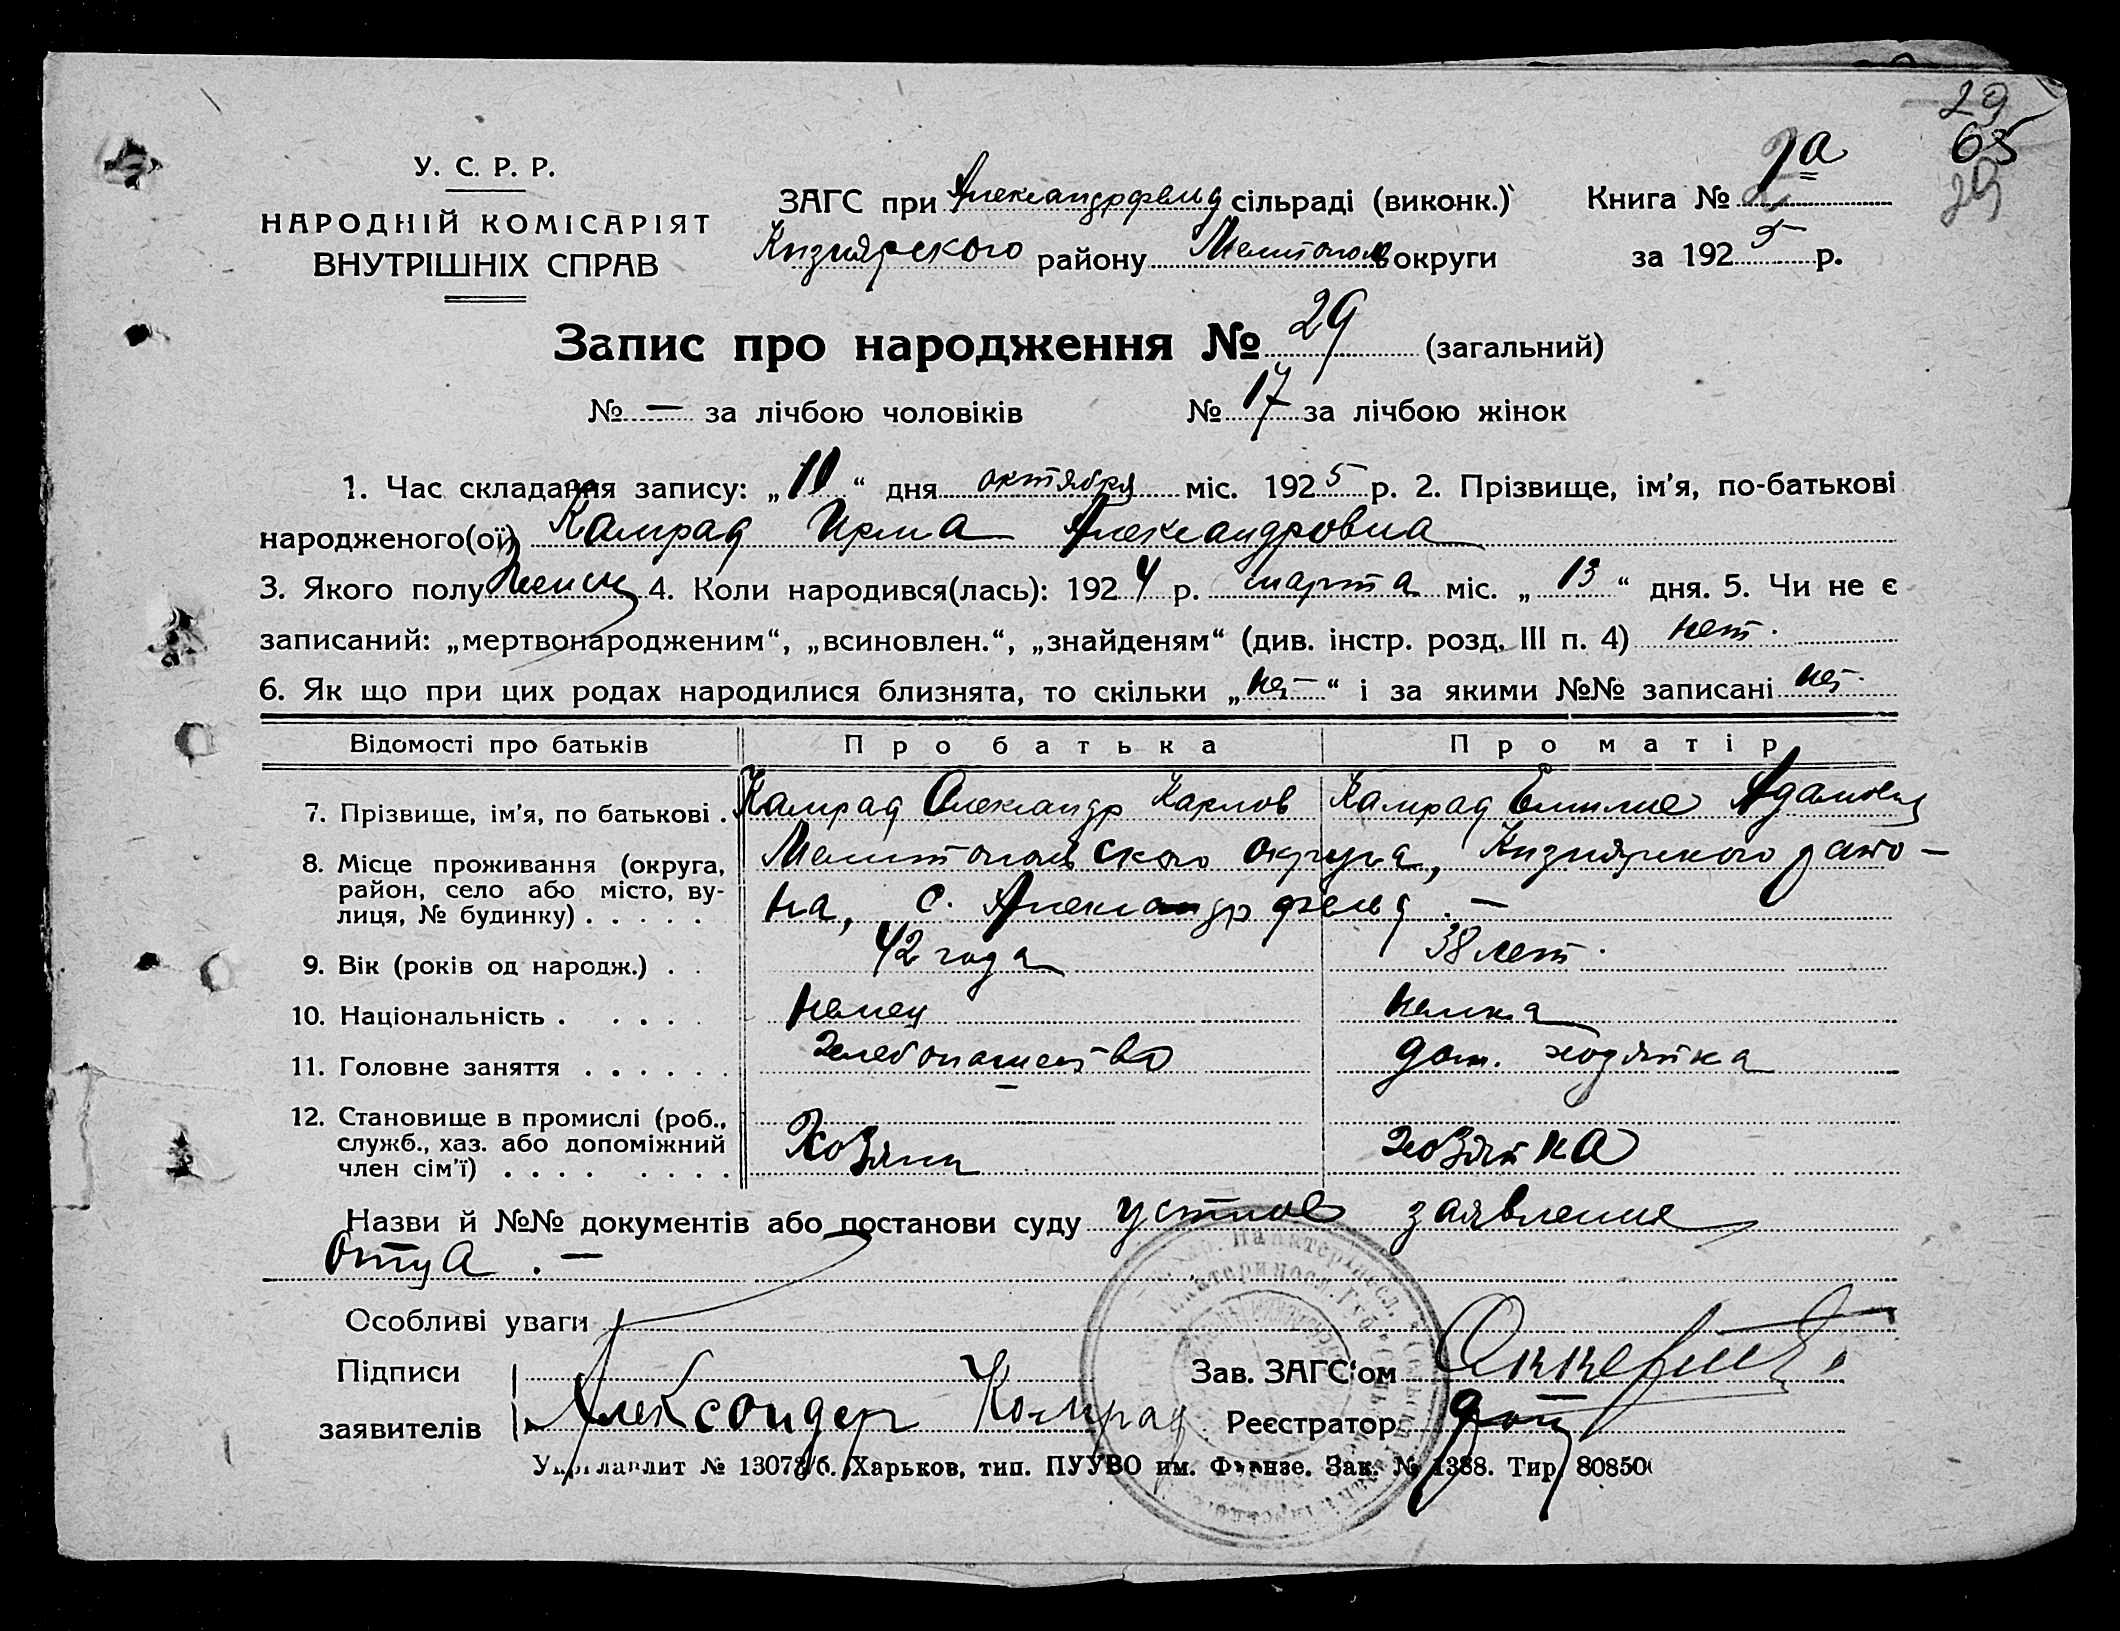 29
65
29
У. С. Р. Р.
НАРОДНІЙ КОМІСАРІЯТ
ВНУТРІШНІХ СПРАВ
ЗАГС при Александрфельд сільраді (виконк.)
Кизиярского району Мелитопол округи
Книга № 1а
за 1925 р.
Запис про народження № 29 (загальний)
№ — за лічбою чоловіків № 17 за лічбою жінок
1. Час складання запису: „10“ дня октября міс. 1925 р. 2. Прізвище, ім'я, по-батькові
народженого(ої) Камрад Ирма Александровна
3. Якого полу женск 4. Коли народився(лась): 1924 р. марта міс. „13“ дня. 5. Чи не є
записаний: „мертвонародженим“, „всиновлен.“, „знайденям“ (див. інстр. розд. III п. 4) нет.
6. Як що при цих родах народилися близнята, то скільки „нет“ і за якими №№ записані нет
Відомості про батьків Про батька Про матір
7. Прізвище, ім'я, по батькові . Камрад Александр Карлов Камрад Емилие Адамовна
8. Місце проживання (округа, район, село або місто, вулиця, № будинку) . . . . . Мелитопольского округа, Кизиярского райо-
на, с. Александрфельд. —
9. Вік (років од народж.) . . 42 года 38 лет.
10. Національність . . . . . немец немка
11. Головне заняття . . . . . . Хлебопашество дом. хозяйка
12. Становище в промислі (роб., служб., хаз. або допоміжний член сім'ї) . . . . . . . . Хозяин хозяйка
Назви й №№ документів або постанови суду устное заявление
отца. —
Особливі уваги
Підписи Зав. ЗАГС'ом
заявителів Александер Комрад Реєстратор
Укрглавлит № 13078/б. Харьков, тип. ПУУВО им. Фрунзе. Зак. № 1388. Тир. 80850